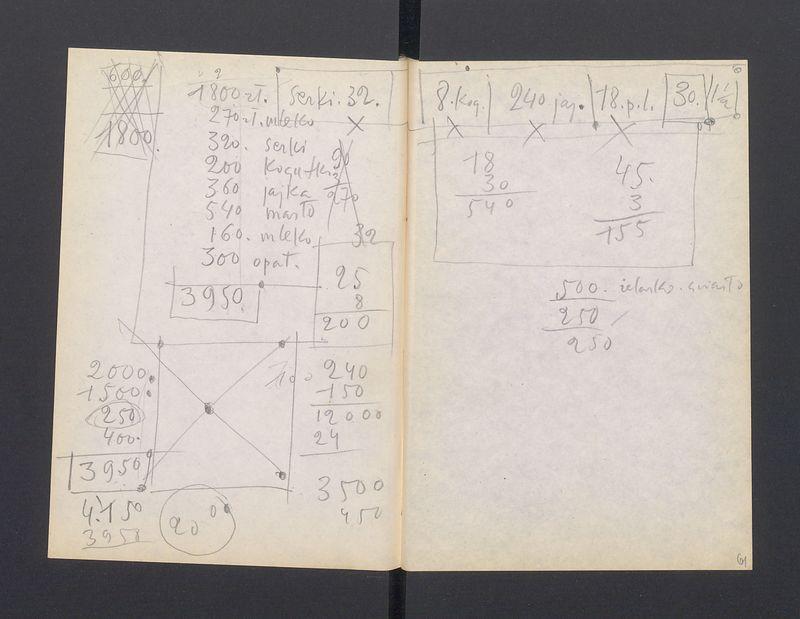 600.
1800.
1800 zł.
270 zł. mleko
320. serki
200 kogutki
360 jajka
540 masło
160. mleko
300 opał.
3950.
serki. 32.
90
3
270
32
25
8
200
2000.
1500.
250
400.
3950
4.150
3950
20
240
150
12000
24
3500
450
8. kog. 240. jaj. 18. p. l. 30. 1 1/2
18
30
540
45.
3
155
500. żelazko. światło
250
250
61